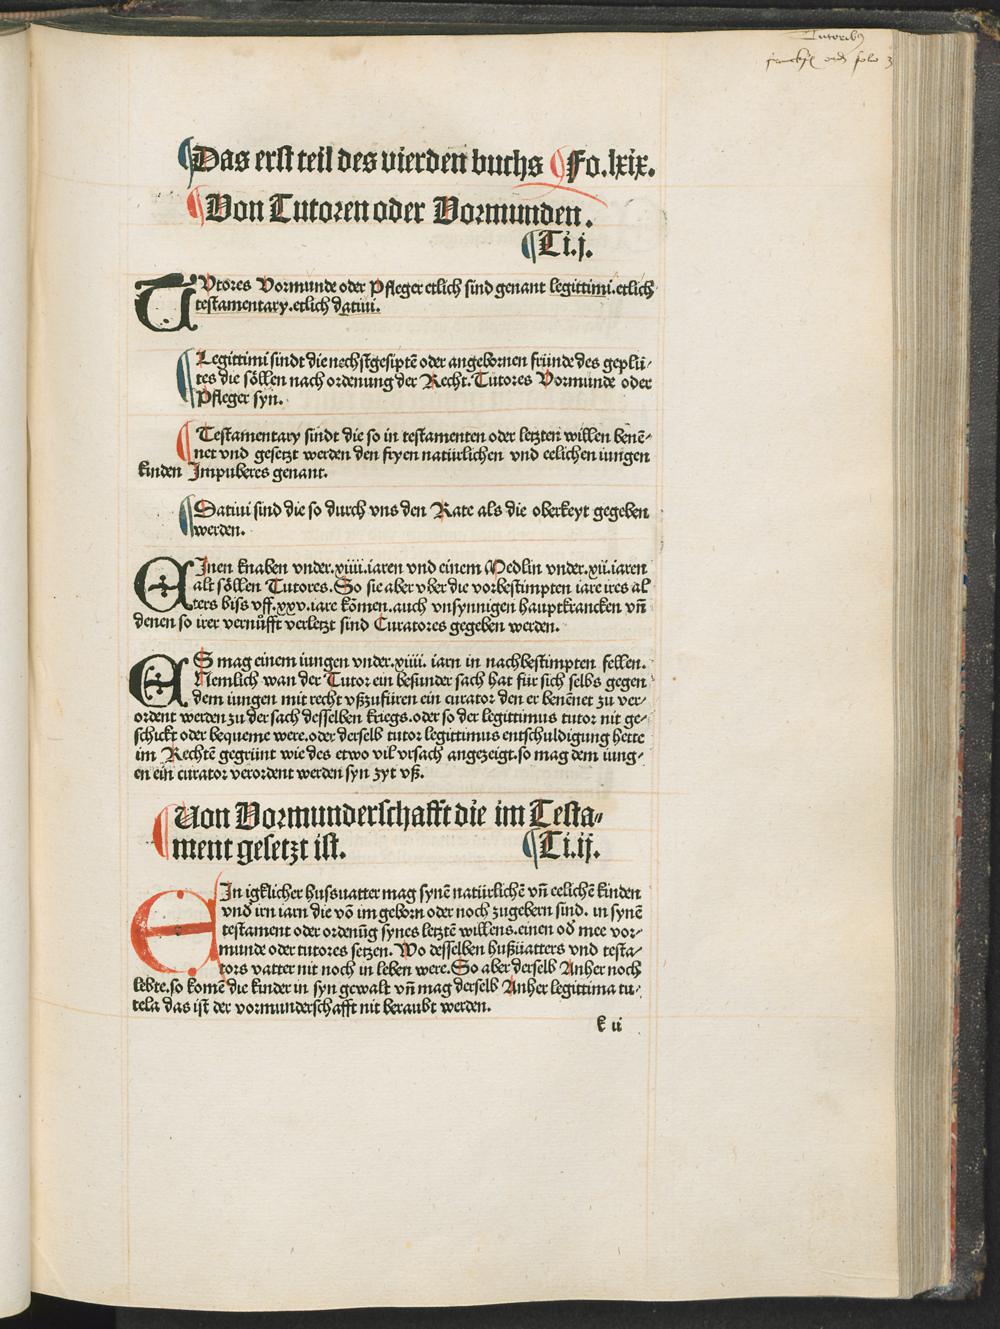 Tutorib9
folo 3
¶Das erst teil des vierden buchs ¶Fo.lxix.
¶Von Tutoren oder Vormunden.
¶Ti.j.
TVtores Vormunde oder Pfleger etlich sind genant legittimi.etlich
testamentary.etlich datiui.
¶Legittimi sindt die nechstgesiptē oder angebornen fründe des geplü-
tes die söllen nach ordenung der Recht.Tutores Vormunde oder
Pfleger syn.
¶Testamentary sindt die so in testamenten oder letzten willen benē-
net vnd gesetzt werden den fryen natürlichen vnd eelichen iungen
kinden Impuberes genant.
¶Datiui sind die so durch vns den Rate als die oberkeyt gegeben
werden.
EInen knaben vnder.xiiii.iaren vnd einem Medlin vnder.xii.iaren
alt söllen Tutores.So sie aber vber die vorbestimpten iare ires al
ters biss vff.xxv.iare kōmen.auch vnsynnigen hauptkrancken vn̄
denen so irer vernůfft verletzt sind Curatores gegeben werden.
ES mag einem iungen vnder.xiiii. iarn in nachbestimpten fellen.
Nemlich wan der Tutor ein besunder sach hat für sich selbs gegen
dem iungen mit recht vßzufüren ein curator den er benēnet zu ver-
ordent werden zu der sach desselben kriegs.oder so der legittimus tutor nit ge-
schickt oder bequeme were.oder derselb tutor legittimus entschuldigung hette
im Rechtē gegrünt wie des etwo vil vrsach angezeigt.so mag dem iung-
en ein curator verordent werden syn zyt vß.
¶Von Vormunderschafft die im Testa-
ment gesetzt ist. ¶Ti.ij.
EIn igklicher husuatter mag synē natürlichē vn̄ eelichē kinden
vnd irn iarn die vō im geborn oder noch zugebern sind. in synē
testament oder ordenūg synes letztē willens.einen od mee vor-
munde oder tutores setzen. Wo desselben hußuatters vnd testa-
tors vatter nit noch in leben were.So aber derselb Anher noch
lebte.so komē die kinder in syn gewalt vn̄ mag derselb Anher legittima tu-
tela das ist der vormunderschafft nit beraubt werden.
k ii